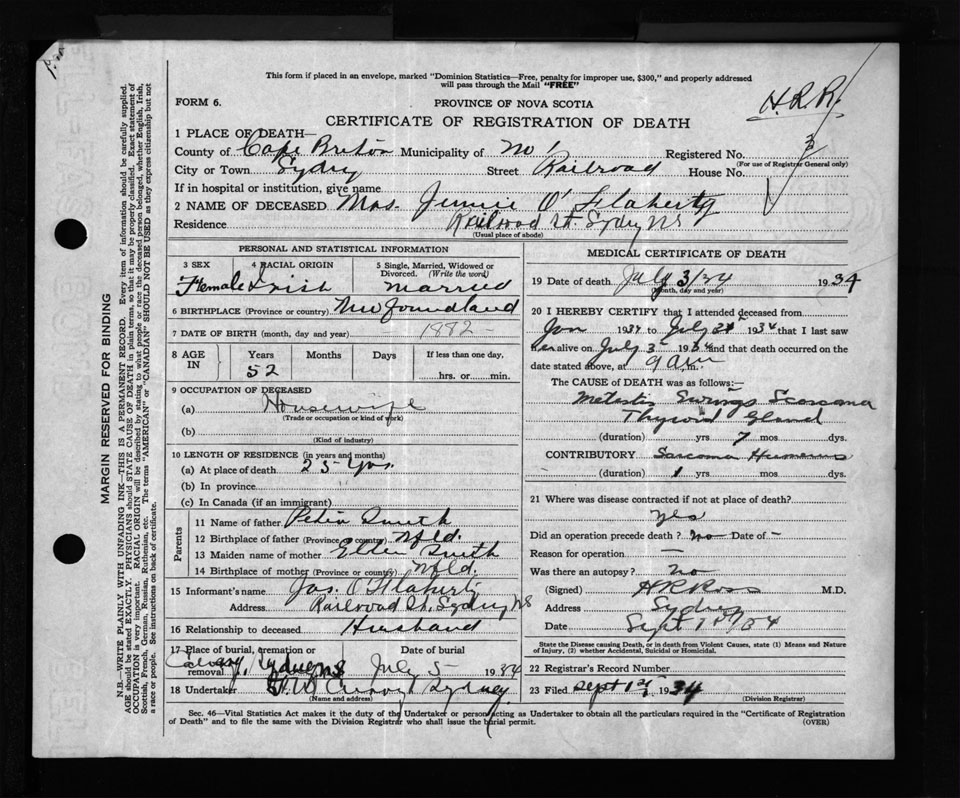 This form if placed in an envelope, marked "Dominion Statistics—Free, penalty for improper use, $300," and properly addressed
will pass through the Mail "FREE"
FORM 6.
PROVINCE OF NOVA SCOTIA
H.R.R.
CERTIFICATE OF REGISTRATION OF DEATH
1 PLACE OF DEATH—
County of Cape Breton Municipality of No 1 Registered No.
(For use of Registrar General only)
City or Town Sydney Street Railroad House No.
If in hospital or institution, give name
2 NAME OF DECEASED Mrs. Jennie O'Flaherty
Residence Railroad St. Sydney NS
(Usual place of abode)
PERSONAL AND STATISTICAL INFORMATION
3 SEX 4 RACIAL ORIGIN 5 Single, Married, Widowed or Divorced. (Write the word)
Female Irish Married
6 BIRTHPLACE (Province or country) Newfoundland
7 DATE OF BIRTH (month, day and year) 1882 -
8 AGE IN Years Months Days If less than one day,
52 hrs. or min.
9 OCCUPATION OF DECEASED
(a) Housewife
(Trade or occupation or kind of work)
(b)
(Kind of industry)
10 LENGTH OF RESIDENCE (in years and months)
(a) At place of death 25 yrs.
(b) In province
(c) In Canada (if an immigrant)
Parents
11 Name of father Smith
12 Birthplace of father (Province or country) Nfld.
13 Maiden name of mother Ellen Smith
14 Birthplace of mother (Province or country) Nfld.
15 Informant's name Jas. O'Flaherty
Address Railroad St. Sydney NS
16 Relationship to deceased Husband
17 Place of burial, cremation or removal Date of burial
Calvary, Sydney NS July 5 1934
18 Undertaker Curry Sydney
(Name and address)
MEDICAL CERTIFICATE OF DEATH
19 Date of death July 3/34 1934
(Month, day and year)
20 I HEREBY CERTIFY that I attended deceased from
Jan 1934 to July 1934 that I last saw
her alive on July 3 1934 and that death occurred on the
date stated above, at 9 am m.
The CAUSE OF DEATH was as follows:—
Thyroid Gland
(duration) yrs. 7 mos. dys.
CONTRIBUTORY Sarcoma Humerus
(duration) 1 yrs. mos. dys.
21 Where was disease contracted if not at place of death?
yes
Did an operation precede death? no Date of —
Reason for operation —
Was there an autopsy? no
(Signed) H R Ross M.D.
Address Sydney
Date Sept 1st/34
State the Disease causing Death, or in death from Violent Causes, state (1) Means and Nature
of Injury, (2) whether Accidental, Suicidal or Homicidal.
22 Registrar's Record Number
23 Filed Sept 1st 1934
(Division Registrar)
Sec. 46—Vital Statistics Act makes it the duty of the Undertaker or person acting as Undertaker to obtain all the particulars required in the "Certificate of Registration
of Death" and to file the same with the Division Registrar who shall issue the burial permit.
(OVER)
MARGIN RESERVED FOR BINDING
N.B.—WRITE PLAINLY WITH UNFADING INK—THIS IS A PERMANENT RECORD. Every item of information should be carefully supplied.
AGE should be stated EXACTLY. PHYSICIANS should STATE CAUSE OF DEATH in plain terms, so that it may be properly classified. Exact statement of
OCCUPATION is very important. RACIAL ORIGIN will be described by stating to what people or race the deceased person belonged, whether English, Irish,
Scottish, French, German, Russian, Ruthenian, etc. The terms "AMERICAN" or "CANADIAN" SHOULD NOT BE USED as they express citizenship but not
a race or people. See instructions on back of certificate.